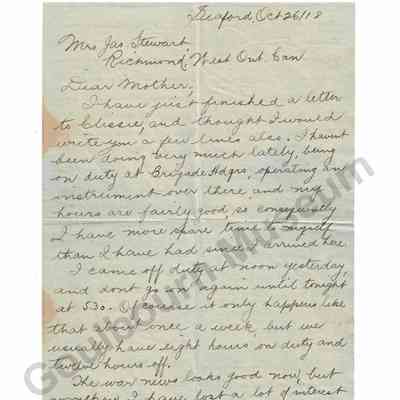 Seaford, Oct 26/18
Mrs Jas. Stewart,
Richmond, West Ont. Can
Dear Mother,
I have just finished a letter
to Clissie, and thought I would
write you a few lines also. I havent
been doing very much lately, being
on duty at Brigade Hdqrs, operating an
instrument over there and my
hours are fairly good, so consequently
I have more spare time to myself
than I have had since I arrived here.
I came off duty at noon yesterday,
and dont go on again until tonight
at 530. Of course it only happens like
that about once a week, but we
usually have eight hours on duty and
twelve hours off.
The war news looks good now, but
I have lost a lot of interest
Goulbourn Museum